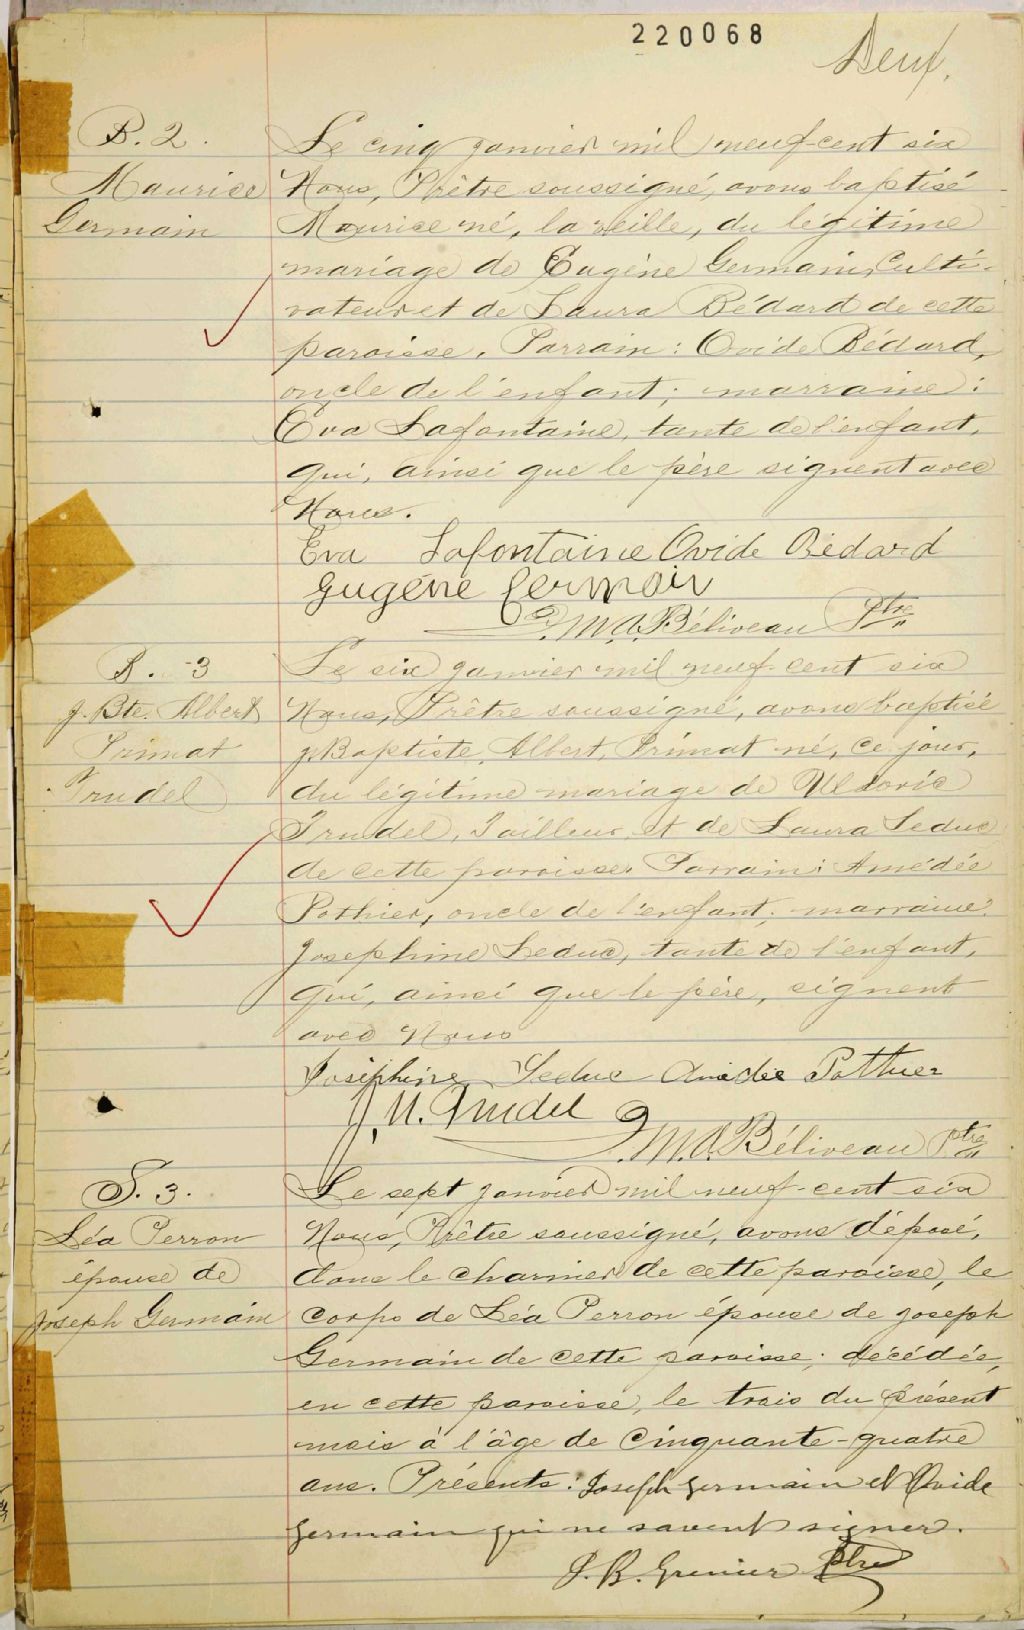 220068
Deux.
B. 2.
Maurice
Germain
Le cinq janvier mil neuf-cent six
Nous, Prêtre soussigné, avons baptisé
Maurice né, la veille, du légitime
mariage de Eugène Germain, Culti-
vateur et de Laura Bédard de cette
paroisse. Parrain: Ovide Bédard,
oncle de l'enfant; marraine:
Eva Lafontaine, tante de l'enfant,
qui, ainsi que le père signent avec
Nous.
Eva Lafontaine Ovide Bédard
Eugène Germain
M.A. Béliveau Ptre
B. 3
J. Bte. Albert
Primat
Trudel
Le six janvier mil neuf-cent six
Nous, Prêtre soussigné, avons baptisé
J. Baptiste, Albert, Primat né, ce jour,
du légitime mariage de Uldoric
Trudel, Tailleur et de Laura Leduc
de cette paroisse. Parrain: Amédée
Pothier, oncle de l'enfant; marraine:
Josephine Leduc, tante de l'enfant,
qui, ainsi que le père, signent
avec Nous
Joséphine Leduc Amédée Pothier
J. U. Trudel
M.A. Béliveau Ptre
S. 3.
Léa Perron
épouse de
Joseph Germain
Le sept janvier mil neuf-cent six
Nous, Prêtre soussigné, avons déposé,
dans le charnier de cette paroisse, le
corps de Léa Perron épouse de Joseph
Germain de cette paroisse; décédée,
en cette paroisse, le trois du présent
mois à l'âge de cinquante-quatre
ans. Présents: Joseph Germain et Ovide
Germain qui ne savent signer.
J. B. Grenier Ptre